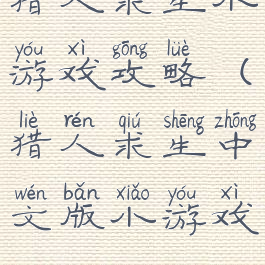 猎人求生小
yóu xì gōng lüè
游戏攻略（
liè rén qiú shēng zhōng
猎人求生中
wén bǎn xiǎo yóu xì
文版小游戏